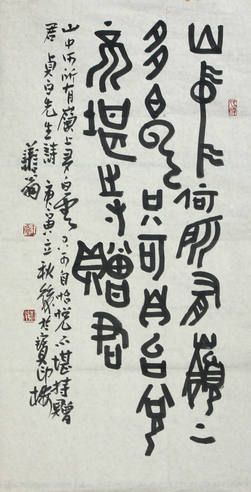 山中何所有嶺上
多白云只可自台兌
不堪寺贈君
山中何所有嶺上多白雲只可自怡悅不堪持贈
君 貞白先生詩 庚寅立秋篆於寶印